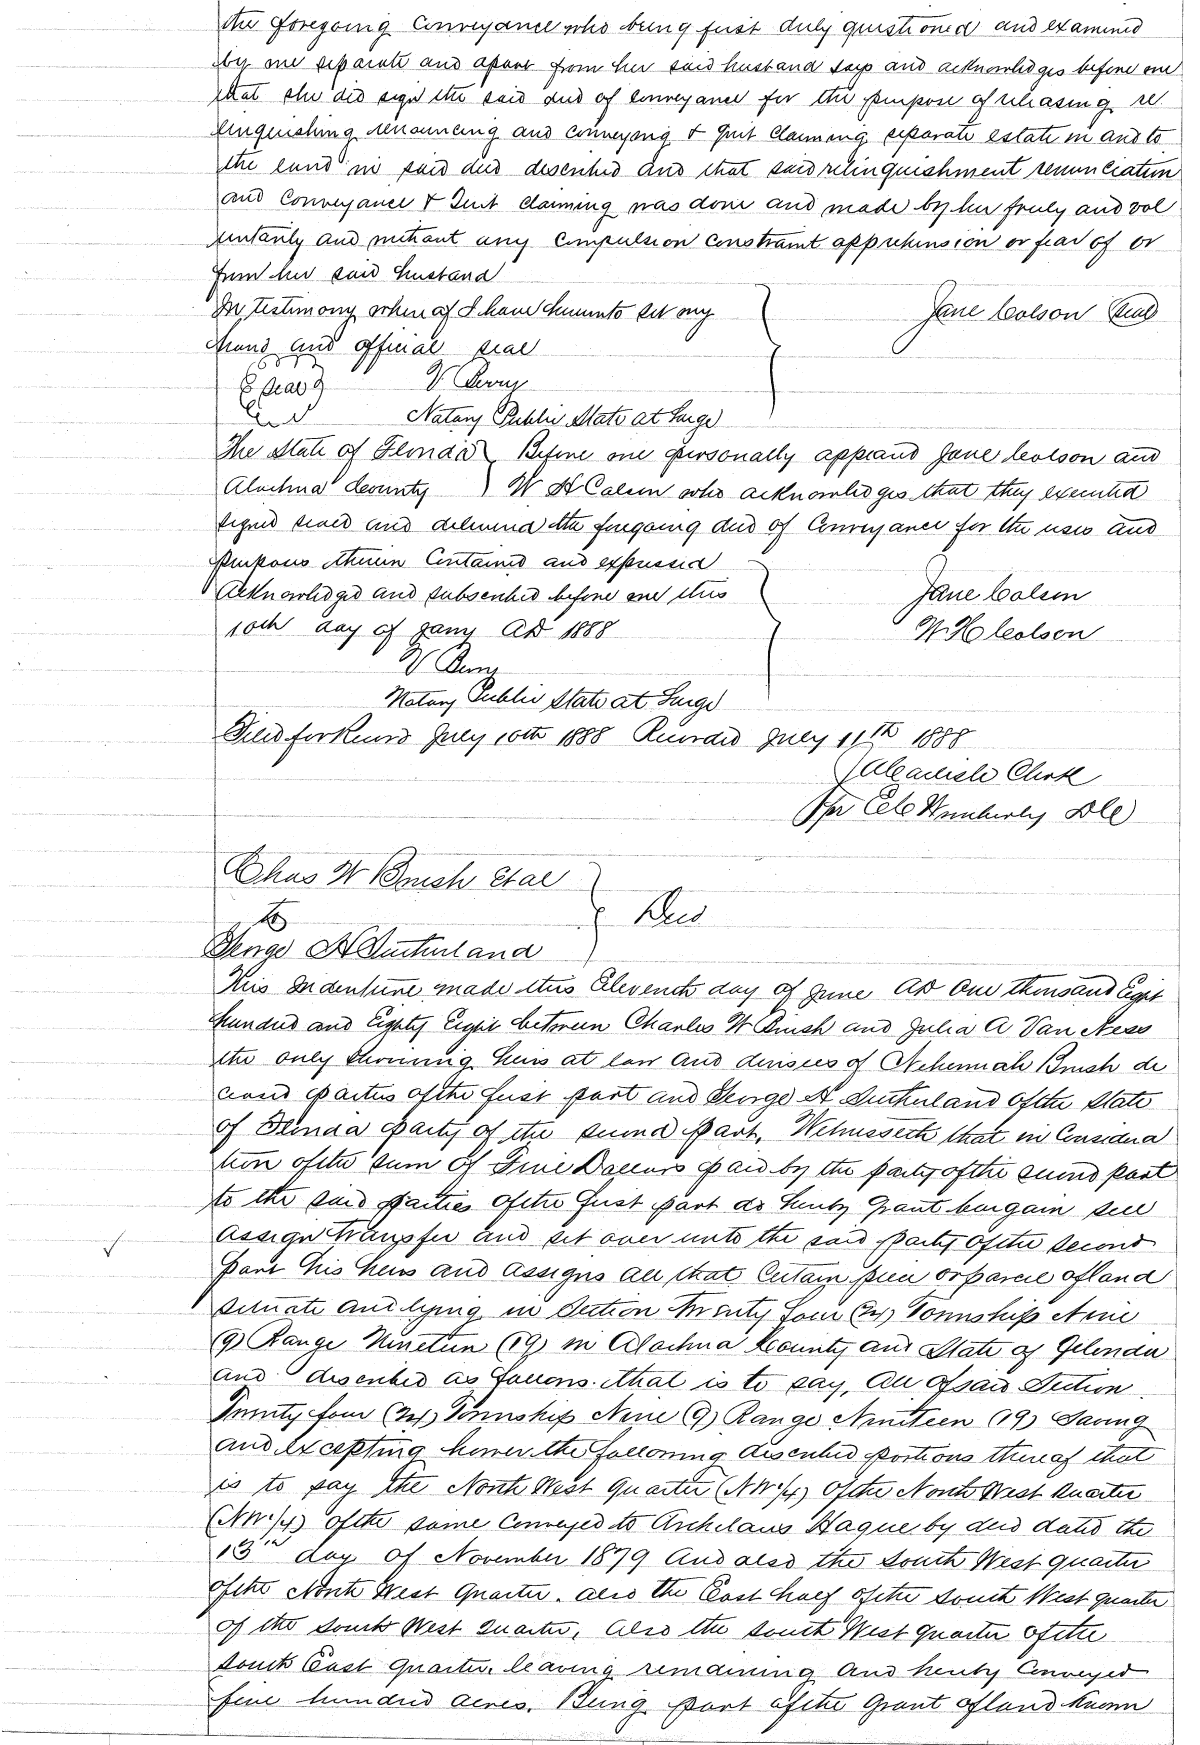 the foregoing Conveyance who being first duly questioned and examined
by me separate and apart from her said husband says and acknowledges before me
that she did sign the said deed of conveyance for the purpose of releasing re
linquishing renouncing and conveying & quit claiming separate estate in and to
the land in said deed described and that said relinquishment renunciation
and Conveyance & Quit claiming was done and made by her freely and vol
untarily and without any compulsion constraint apprehension or fear of or
from her said husband
In testimony where of I have hereunto set my
Jane Colson Seal
hand and official seal
Seal V Perry
Notary Public State at Large
The State of Florida } Before me personally appeard Jane Colson and
Alachua County } W H Colson who acknowledges that they executed
signed sealed and delivered the foregoing deed of Conveyance for the uses and
purposes therein Contained and expressed
Acknowledged and subscribed before me this
Jane Colson
10th day of Jany AD 1888
W H Colson
V Perry
Notary Public State at Large
Filed for Record July 10th 1888 Recorded July 11th 1888
Clerk
Per Wimberly DC
Chas W Brush et al
to } Deed
George H Sutherland
This Indenture made this Eleventh day of June AD One thousand Eight
hundred and Eighty Eight between Charles W Brush and Julia A Van Ness
the only surviving heirs at law and devisees of Nehemiah Brush de
ceased parties of the first part and George H Sutherland of the State
of Florida party of the second part, Witnesseth that in Considera
tion of the sum of Five Dollars paid by the party of the second part
to the said parties of the first part do hereby grant bargain sell
assign transfer and set over unto the said party of the second
part his heirs and assigns all that Certain piece or parcel of land
situate and lying in Section Twenty four (24) Township Nine
(9) Range Nineteen (19) in Alachua County and State of Florida
and described as follows. that is to say, All of said Section
Twenty four (24) Township Nine (9) Range Nineteen (19) Saving
and excepting however the following described portions thereof that
is to say the North West quarter (NW1/4) of the North West quarter
(NW1/4) of the same Conveyed to Archelaus Hague by deed dated the
13th day of November 1879 And also the South West quarter
of the North West Quarter. also the East half of the South West quarter
of the South West Quarter, Also the South West quarter of the
South East quarter. leaving remaining and hereby Conveyed
five hundred acres. Being part of the Grant of land known